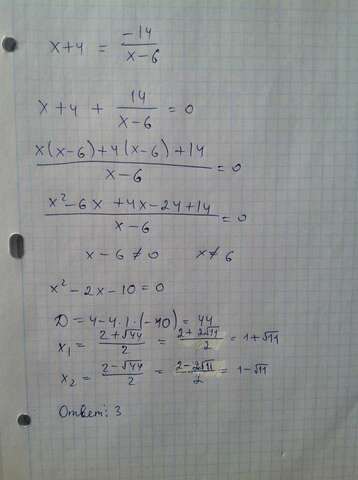 x+4 = -14/(x-6)
x+4 + 14/(x-6) = 0
(x(x-6)+4(x-6)+14)/(x-6) = 0
(x²-6x+4x-24+14)/(x-6) = 0
x-6≠0 x≠6
x²-2x-10=0
D=4-4·1·(-10)=44
x₁ = (2+√44)/2 = (2+2√11)/2 = 1+√11
x₂ = (2-√44)/2 = (2-2√11)/2 = 1-√11
Ответ: 3